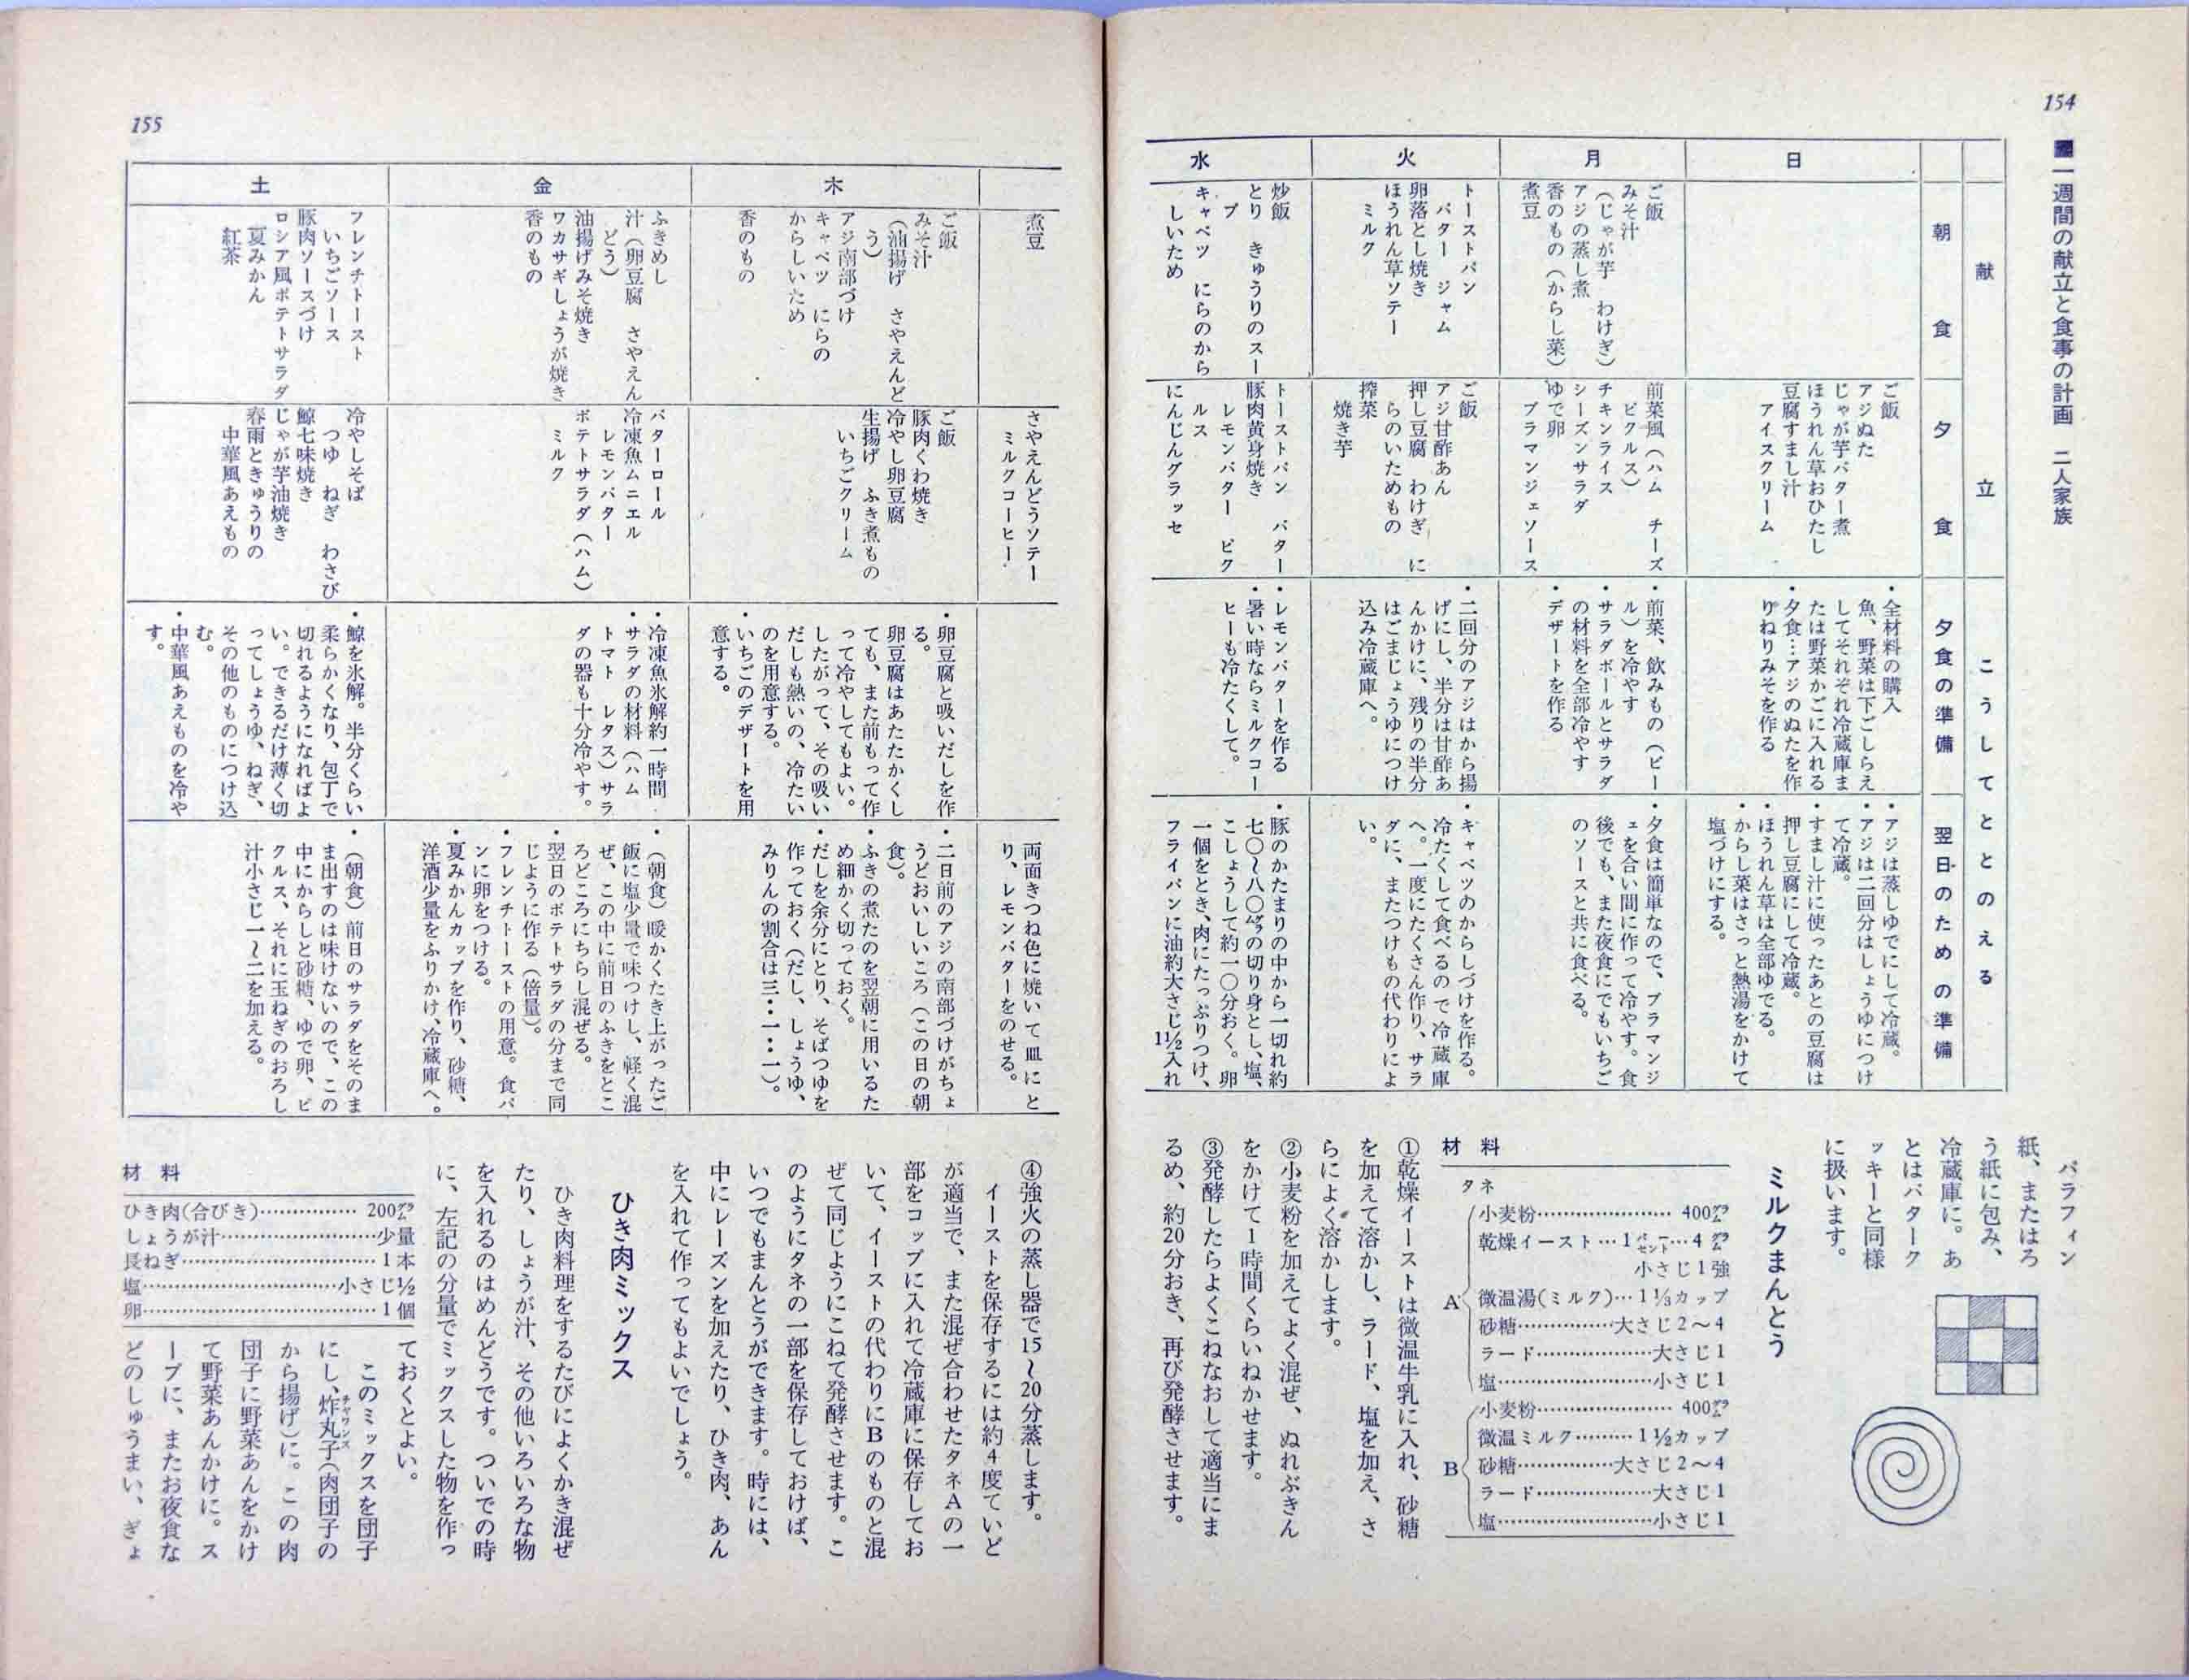 154
■一週間の献立と食事の計画　二人家族
献立
こうしてととのえる
朝食
夕食
夕食の準備
翌日のための準備
日
ご飯
アジぬた
じゃが芋バター煮
ほうれん草おひたし
豆腐すまし汁
アイスクリーム
・全材料の購入
魚、野菜は下ごしらえ
してそれぞれ冷蔵庫ま
たは野菜かごに入れる
・夕食…アジのぬたを作
りねりみそを作る
・アジは蒸しゆでにして冷蔵。
・アジは二回分はしょうゆにつけ
て冷蔵。
・すまし汁に使ったあとの豆腐は
押し豆腐にして冷蔵。
・ほうれん草は全部ゆでる。
・からし菜はさっと熱湯をかけて
塩づけにする。
月
ご飯
みそ汁
（じゃが芋　わけぎ）
アジの蒸し煮
香のもの（からし菜）
煮豆
前菜風（ハム　チーズ
ピクルス）
チキンライス
シーズンサラダ
ゆで卵
ブラマンジェソース
・前菜、飲みもの（ビー
ル）を冷やす
・サラダボールとサラダ
の材料を全部冷やす
・デザートを作る
・夕食は簡単なので、ブラマンジ
ェを合い間に作って冷やす。食
後でも、また夜食にでもいちご
のソースと共に食べる。
火
トーストパン
バター　ジャム
卵落とし焼き
ほうれん草ソテー
ミルク
ご飯
アジ甘酢あん
押し豆腐　わけぎ　に
らのいためもの
搾菜
焼き芋
・二回分のアジはから揚
げにし、半分は甘酢あ
んかけに、残りの半分
はごまじょうゆにつけ
込み冷蔵庫へ。
・キャベツのからしづけを作る。
冷たくして食べるので冷蔵庫
へ。一度にたくさん作り、サラ
ダに、またつけもの代わりによ
い。
水
炒飯
とり　きゅうりのスー
プ
キャベツ　にらのから
しいため
トーストパン　バター
豚肉黄身焼き
レモンバター　ピク
ルス
にんじんグラッセ
・レモンバターを作る
・暑い時ならミルクコー
ヒーも冷たくして。
・豚のかたまりの中から一切れ約
七〇〜八〇㌘の切り身とし、塩、
こしょうして約一〇分おく。卵
一個をとき、肉にたっぷりつけ、
フライパンに油約大さじ1½入れ
パラフィン
紙、またはろ
う紙に包み、
冷蔵庫に。あ
とはバターク
ッキーと同様
に扱います。
ミルクまんとう
材　料
タネ
A
小麦粉…………………… 400㌘
乾燥イースト…1㌫…4㌘
小さじ1強
微温湯(ミルク)…1⅓カップ
砂糖……………大さじ2〜4
ラード………………大さじ1
塩……………………小さじ1
B
小麦粉…………………… 400㌘
微温ミルク………1½カップ
砂糖……………大さじ2〜4
ラード………………大さじ1
塩……………………小さじ1
①乾燥イーストは微温牛乳に入れ、砂糖
を加えて溶かし、ラード、塩を加え、さ
らによく溶かします。
②小麦粉を加えてよく混ぜ、ぬれぶきん
をかけて1時間くらいねかせます。
③発酵したらよくこねなおして適当にま
るめ、約20分おき、再び発酵させます。
155
煮豆
さやえんどうソテー
ミルクコーヒー
両面きつね色に焼いて皿にと
り、レモンバターをのせる。
木
ご飯
みそ汁
（油揚げ　さやえんど
う）
アジ南部づけ
キャベツ　にらの
からしいため
香のもの
ご飯
豚肉くわ焼き
冷やし卵豆腐
生揚げ　ふき煮もの
いちごクリーム
・卵豆腐と吸いだしを作
る。
卵豆腐はあたたかくし
ても、また前もって作
って冷やしてもよい。
したがって、その吸い
だしも熱いの、冷たい
のを用意する。
・いちごのデザートを用
意する。
・二日前のアジの南部づけがちょ
うどおいしいころ（この日の朝
食）。
・ふきの煮たのを翌朝に用いるた
め細かく切っておく。
・だしを余分にとり、そばつゆを
作っておく（だし、しょうゆ、
みりんの割合は三：一：一）。
金
ふきめし
汁（卵豆腐　さやえん
どう）
油揚げみそ焼き
ワカサギしょうが焼き
香のもの
バターロール
冷凍魚ムニエル
レモンバター
ポテトサラダ（ハム）
ミルク
・冷凍魚氷解約一時間
・サラダの材料（ハム
トマト　レタス）サラ
ダの器も十分冷やす。
・（朝食）暖かくたき上がったご
飯に塩少量で味つけし、軽く混
ぜ、この中に前日のふきをとこ
ろどころにちらし混ぜる。
・翌日のポテトサラダの分まで同
じように作る（倍量）。
・フレンチトーストの用意。食パ
ンに卵をつける。
・夏みかんカップを作り、砂糖、
洋酒少量をふりかけ、冷蔵庫へ。
土
フレンチトースト
いちごソース
豚肉ソースづけ
ロシア風ポテトサラダ
夏みかん
紅茶
冷やしそば
つゆ　ねぎ　わさび
鯨七味焼き
じゃが芋油焼き
春雨ときゅうりの
中華風あえもの
・鯨を氷解。半分くらい
柔らかくなり、包丁で
切れるようになればよ
い。できるだけ薄く切
ってしょうゆ、ねぎ、
その他のものにつけ込
む。
・中華風あえものを冷や
す。
・（朝食）前日のサラダをそのま
ま出すのは味けないので、この
中にからしと砂糖、ゆで卵、ピ
クルス、それに玉ねぎのおろし
汁小さじ一〜二を加える。
④強火の蒸し器で15〜20分蒸します。
イーストを保存するには約4度ていど
が適当で、また混ぜ合わせたタネAの一
部をコップに入れて冷蔵庫に保存してお
いて、イーストの代わりにBのものと混
ぜて同じようにこねて発酵させます。こ
のようにタネの一部を保存しておけば、
いつでもまんとうができます。時には、
中にレーズンを加えたり、ひき肉、あん
を入れて作ってもよいでしょう。
ひき肉ミックス
ひき肉料理をするたびによくかき混ぜ
たり、しょうが汁、その他いろいろな物
を入れるのはめんどうです。ついでの時
に、左記の分量でミックスした物を作っ
ておくとよい。
材　料
ひき肉(合びき)…………… 200㌘
しょうが汁……………………少量
長ねぎ…………………………1本
塩…………………………小さじ½
卵………………………………1個
このミックスを団子
にし、炸丸子(肉団子の
チャワンズ
から揚げ)に。この肉
団子に野菜あんをかけ
て野菜あんかけに。ス
ープに、またお夜食な
どのしゅうまい、ぎょ